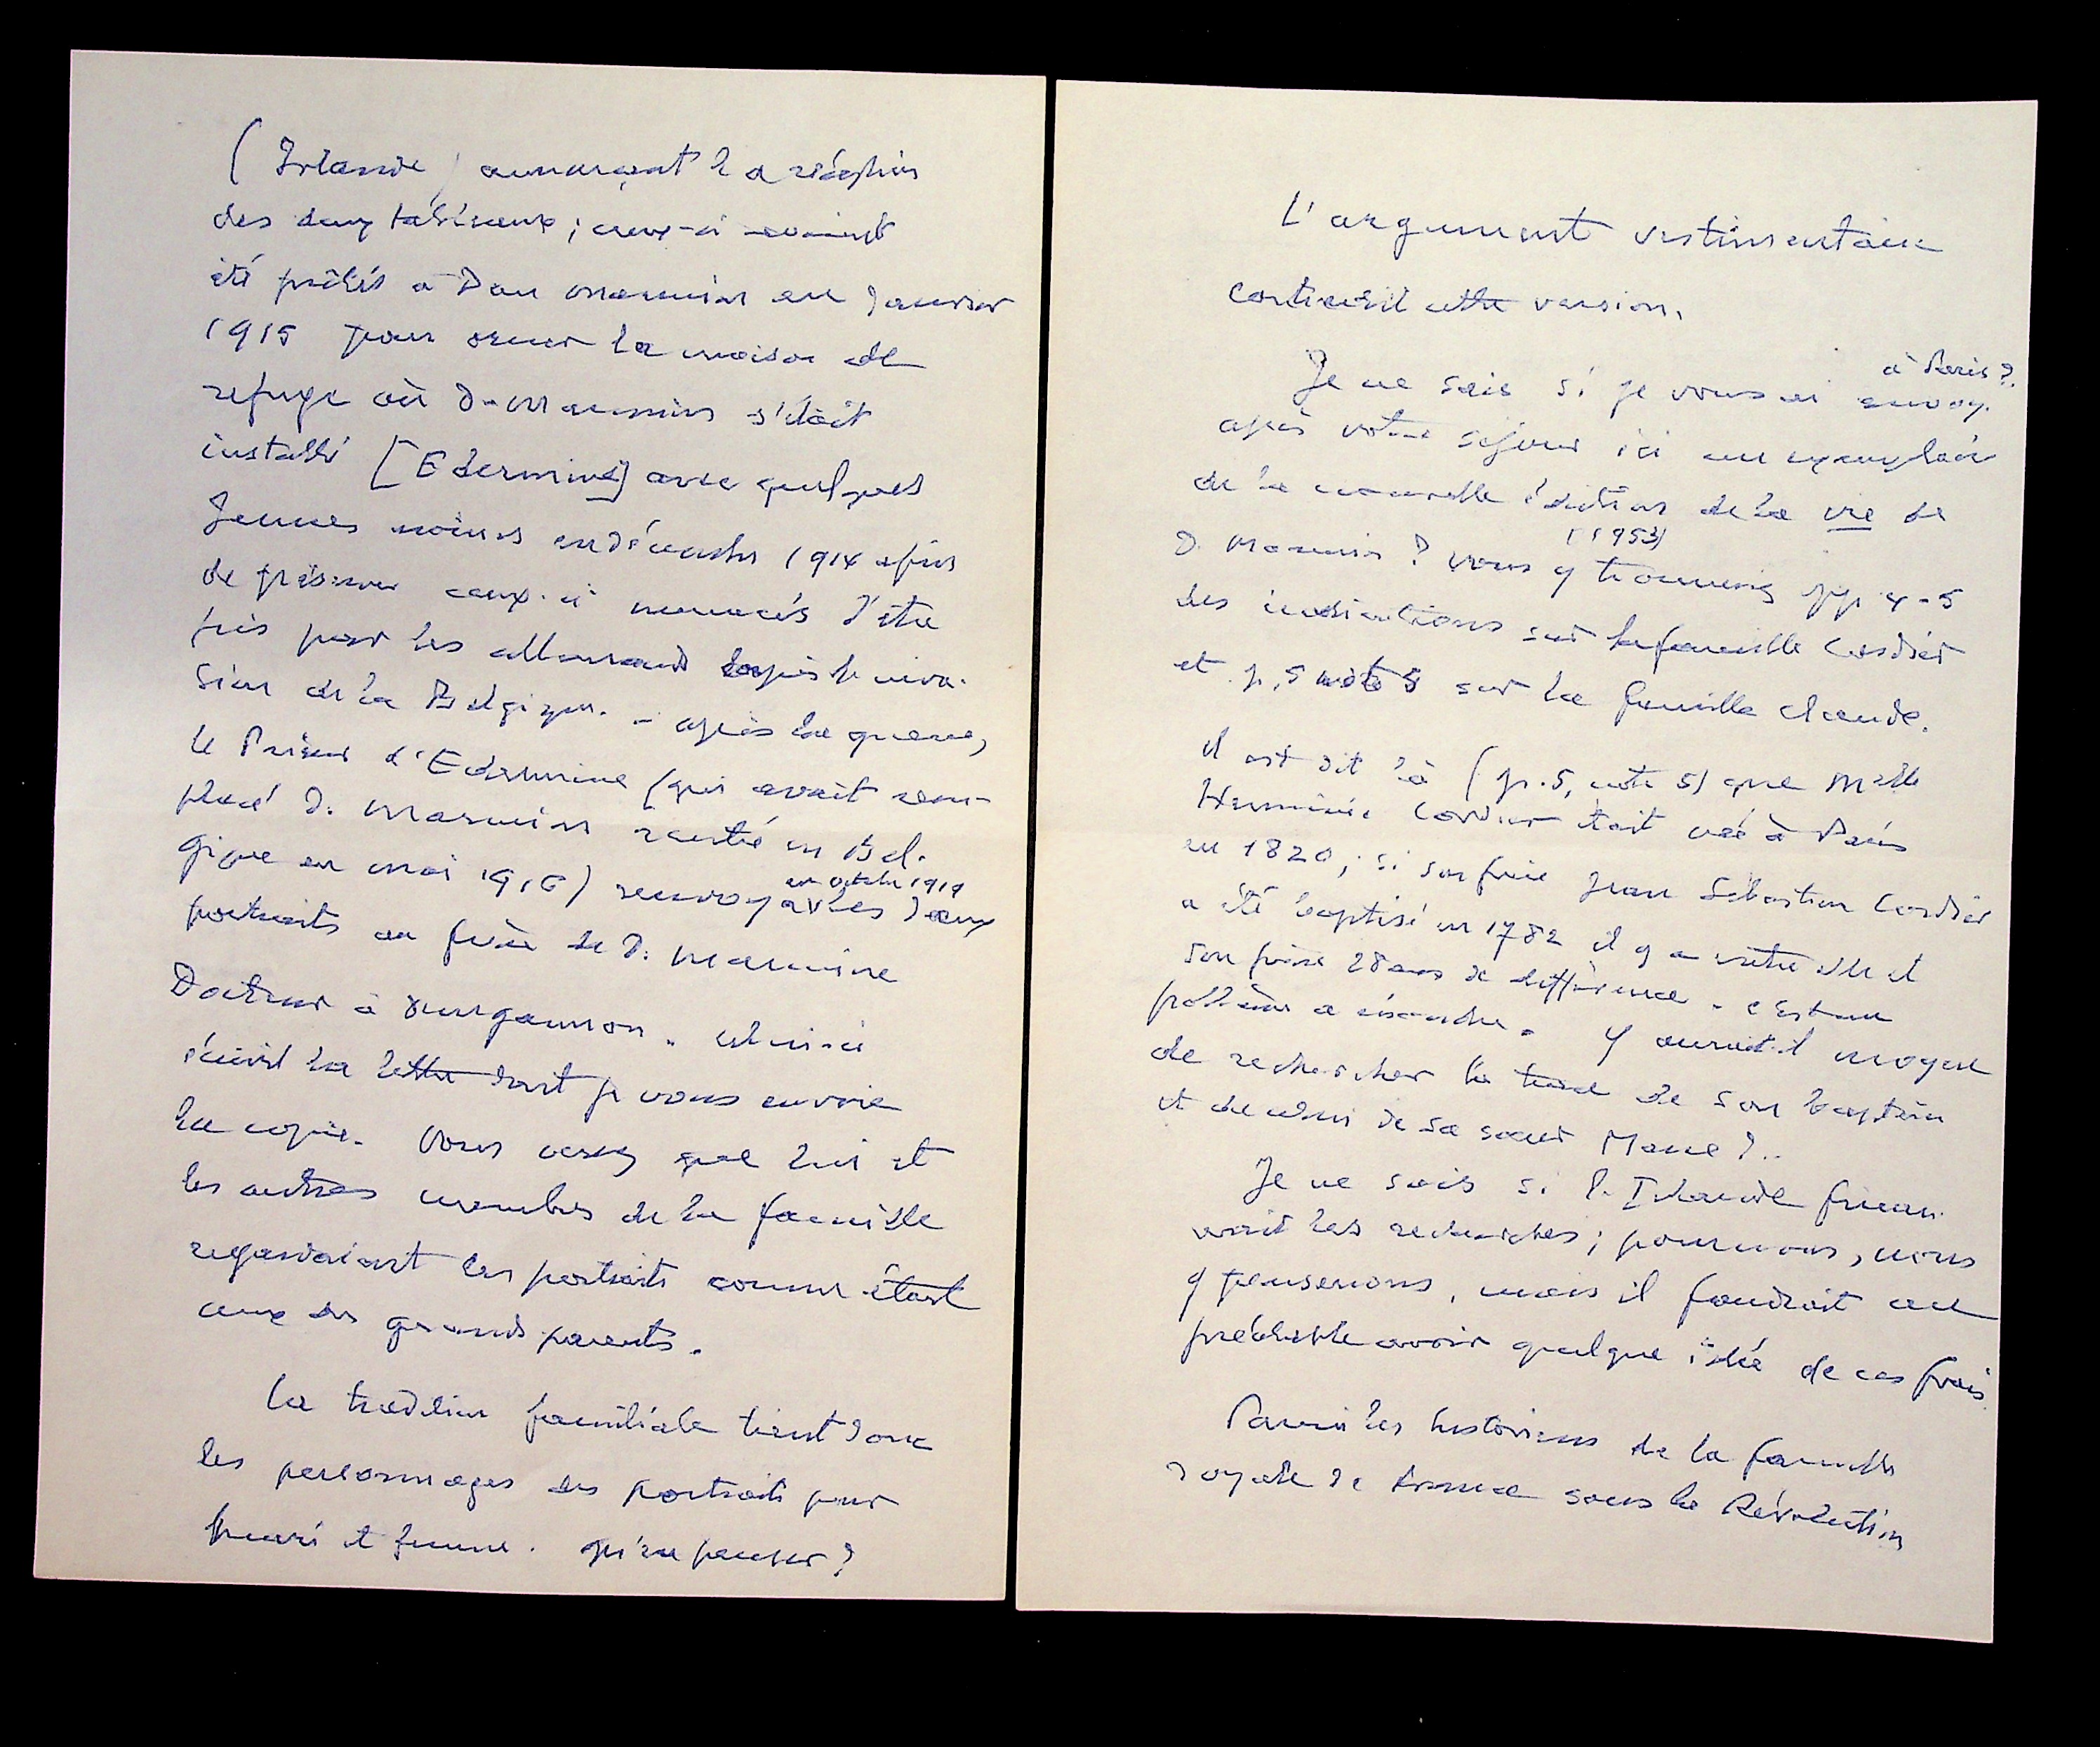 (Irlande) annonçant la réception
des deux tableaux ; ceux-ci avaient
été prêtés à Dom Marmion en Janvier
1915 pour orner la maison de
refuge où D. Marmion s'était
installé [Edermine] avec quelques
Jeunes moines en décembre 1914 afin
de préserver ceux-ci menacés d'être
pris par les allemands après l'inva-
sion de la Belgique. - après la guerre,
le Prieur d'Edermine (qui avait rem-
placé D. Marmion rentré en Bel-
gique en mai 1916) renvoya les deux
en octobre 1919
portraits au frère de D. Marmion
Docteur à Dungannon. celui-ci
écrivit la lettre dont je vous envoie
la copie. Vous verrez que lui et
les autres membres de la famille
regardaient les portraits comme étant
ceux des grands parents.
La tradition familiale tient donc
les personnages des portraits pour
mari et femme. qu'en penser ?
L'argument vestimentaire
contredit cette version.
à Paris ?
Je ne sais si je vous ai envoy.
après votre séjour ici un exemplaire
de la nouvelle édition de la vie de
(1953)
D. Marmion ? vous y trouverez pp. 4-5
des indications sur la famille Cordier
et p. 5 note 5 sur la famille claude.
il est dit là (p. 5, note 5) que Melle
Herminie Cordier était née à Paris
en 1820 ; si son frère Jean Sébastien Cordier
a été baptisé en 1782 il y a entre elle et
son frère 28 ans de différence - c'est un
problème à résoudre. Y aurait-il moyen
de rechercher la trace de son baptême
et de celui de sa soeur Marie ?..
Je ne sais si l'Irlande finan-
cerait les recherches ; pour nous, nous
y penserions, mais il faudrait au
préalable avoir quelque idée de ces frais
Parmi les historiens de la famille
royale de France sous la Révolution